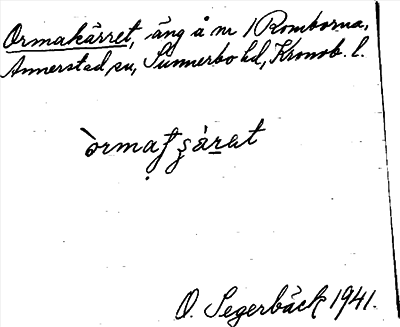 Ormakärret, äng å nr 1 Romborna,
Annerstad sn, Sunnerbo hd, Kronob. l.
òrmatʂäṟat
O. Segerbäck 1941.